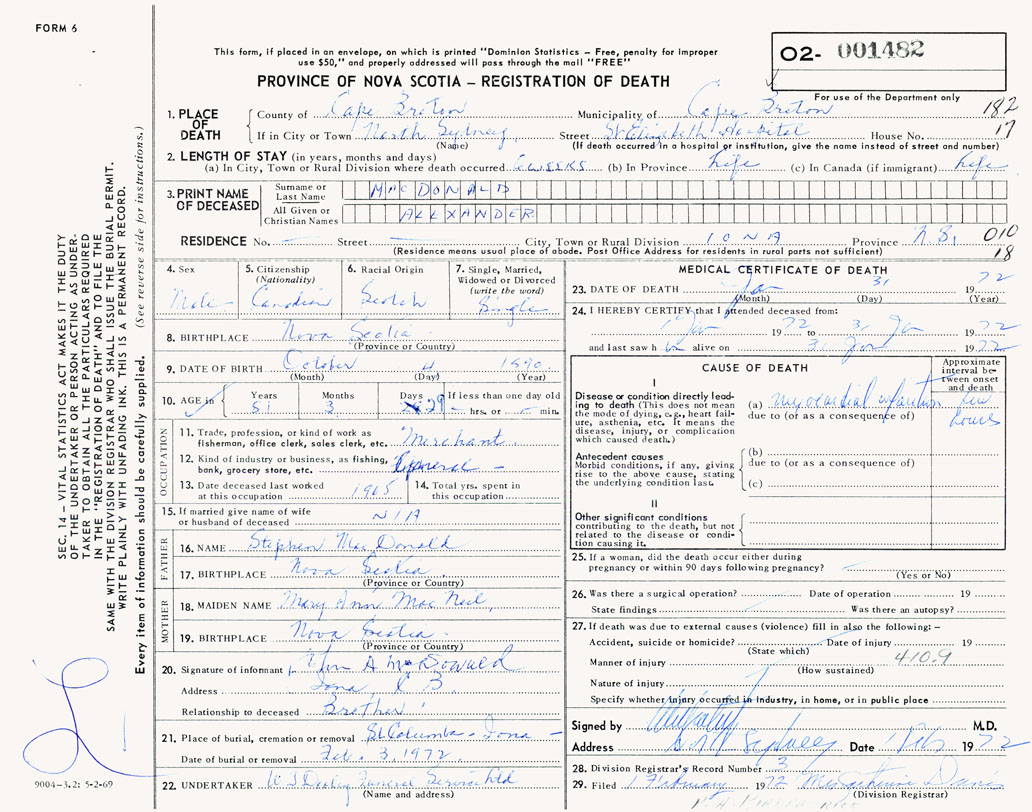 FORM 6
This form, if placed in an envelope, on which is printed "Dominion Statistics – Free, penalty for improper
use $50," and properly addressed will pass through the mail "FREE"
O2- 001482
PROVINCE OF NOVA SCOTIA – REGISTRATION OF DEATH
For use of the Department only
1. PLACE OF DEATH
County of Cape Breton Municipality of Cape Breton 182
If in City or Town North Sydney Street St Elizabeth Hospital House No. 17
(Name) (If death occurred in a hospital or institution, give the name instead of street and number)
2. LENGTH OF STAY (in years, months and days)
(a) In City, Town or Rural Division where death occurred 6 WEEKS (b) In Province Life (c) In Canada (if immigrant) Life
3. PRINT NAME OF DECEASED
Surname or Last Name MAC DONALD
All Given or Christian Names ALLXANDER
RESIDENCE No. – Street – City, Town or Rural Division IONA Province N.S. 010
(Residence means usual place of abode. Post Office Address for residents in rural parts not sufficient) 18
4. Sex Male
5. Citizenship (Nationality) Canadian
6. Racial Origin Scotch
7. Single, Married, Widowed or Divorced (write the word) Single
8. BIRTHPLACE Nova Scotia
(Province or Country)
9. DATE OF BIRTH October 4 1890
(Month) (Day) (Year)
10. AGE in Years 81 Months 3 Days 29 If less than one day old – hrs. or – min.
OCCUPATION
11. Trade, profession, or kind of work as fisherman, office clerk, sales clerk, etc. Merchant
12. Kind of industry or business, as fishing, bank, grocery store, etc. General –
13. Date deceased last worked at this occupation 1965
14. Total yrs. spent in this occupation
15. If married give name of wife or husband of deceased N/A
FATHER
16. NAME Stephen Mac Donald
17. BIRTHPLACE Nova Scotia
(Province or Country)
MOTHER
18. MAIDEN NAME Mary Ann Mac Neil
19. BIRTHPLACE Nova Scotia
(Province or Country)
20. Signature of informant A McDonald
Address Iona, C B
Relationship to deceased Brother
21. Place of burial, cremation or removal St. Columba - Iona –
Date of burial or removal Feb. 3, 1972
22. UNDERTAKER Funeral Service Ltd
(Name and address)
MEDICAL CERTIFICATE OF DEATH
23. DATE OF DEATH Jan 31 1972
(Month) (Day) (Year)
24. I HEREBY CERTIFY that I attended deceased from:
1972 to 31 Jan 1972
and last saw h im alive on 31 Jan 1972
CAUSE OF DEATH
Approximate interval between onset and death
I
Disease or condition directly leading to death (This does not mean the mode of dying, e.g., heart failure, asthenia, etc. It means the disease, injury, or complication which caused death.)
(a) Myocardial infarction few hours
due to (or as a consequence of)
Antecedent causes
Morbid conditions, if any, giving rise to the above cause, stating the underlying condition last.
(b)
due to (or as a consequence of)
(c)
II
Other significant conditions contributing to the death, but not related to the disease or condition causing it.
25. If a woman, did the death occur either during pregnancy or within 90 days following pregnancy?
(Yes or No)
26. Was there a surgical operation? Date of operation 19
State findings Was there an autopsy?
27. If death was due to external causes (violence) fill in also the following:–
Accident, suicide or homicide? Date of injury 19
(State which)
Manner of injury 410.9
(How sustained)
Nature of injury
Specify whether injury occurred in Industry, in home, or in public place
Signed by M.D.
Address Sydney Date 1 Feb 1972
28. Division Registrar's Record Number 3
29. Filed 1 February 1972 Davis
(Division Registrar)
SEC. 14 – VITAL STATISTICS ACT MAKES IT THE DUTY
OF THE UNDERTAKER OR PERSON ACTING AS UNDER-
TAKER TO OBTAIN ALL THE PARTICULARS REQUIRED
IN THE "REGISTRATION OF DEATH" AND TO FILE THE
SAME WITH THE DIVISION REGISTRAR WHO SHALL ISSUE THE BURIAL PERMIT.
WRITE PLAINLY WITH UNFADING INK. THIS IS A PERMANENT RECORD.
Every item of information should be carefully supplied. (See reverse side for instructions.)
9004-3.2: 5-2-69